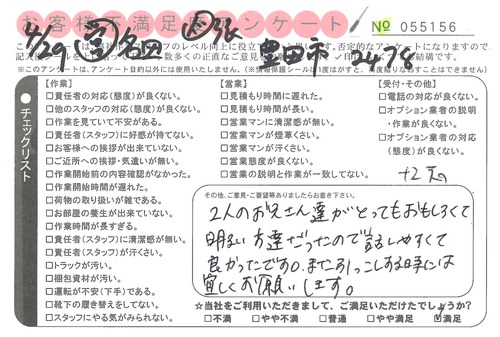 お客様不満足度アンケート
№ 055156
4/29
豊田市
【作業】
□責任者の対応(態度)が良くない。
□他のスタッフの対応(態度)が良くない。
□作業を見ていて不安がある。
□責任者(スタッフ)に好感が持てない。
□お客様への挨拶が出来ていない。
□ご近所への挨拶・気遣いが無い。
□作業開始前の内容確認がなかった。
□作業開始時間が遅れた。
□荷物の取り扱いが雑である。
□お部屋の養生が出来ていない。
□作業時間が長すぎる。
□責任者(スタッフ)に清潔感が無い。
□責任者(スタッフ)が汗くさい。
□トラックが汚い。
□梱包資材が汚い。
□運転が不安(下手)である。
□靴下の履き替えをしてない。
□スタッフにやる気がみられない。
【営業】
□見積もり時間に遅れた。
□見積もり時間が長い。
□営業マンに清潔感が無い。
□営業マンが煙草くさい。
□営業マンが汗くさい。
□営業態度が良くない。
□営業の説明と作業が一致してない。
【受付・その他】
□電話の対応が良くない。
□オプション業者の説明・作業が良くない。
□オプション業者の対応(態度)が良くない。
チェックリスト
その他、ご意見・ご要望等ありましたらお書き下さい。
2人のお兄さん達がとってもおもしろくて
明るい方達だったので話しやすくて
良かったです。また引っこしする時には
宜しくお願いします。
☆当社をご利用いただきまして、ご満足いただけたでしょうか?
□不満 □やや不満 □普通 □やや満足 □満足